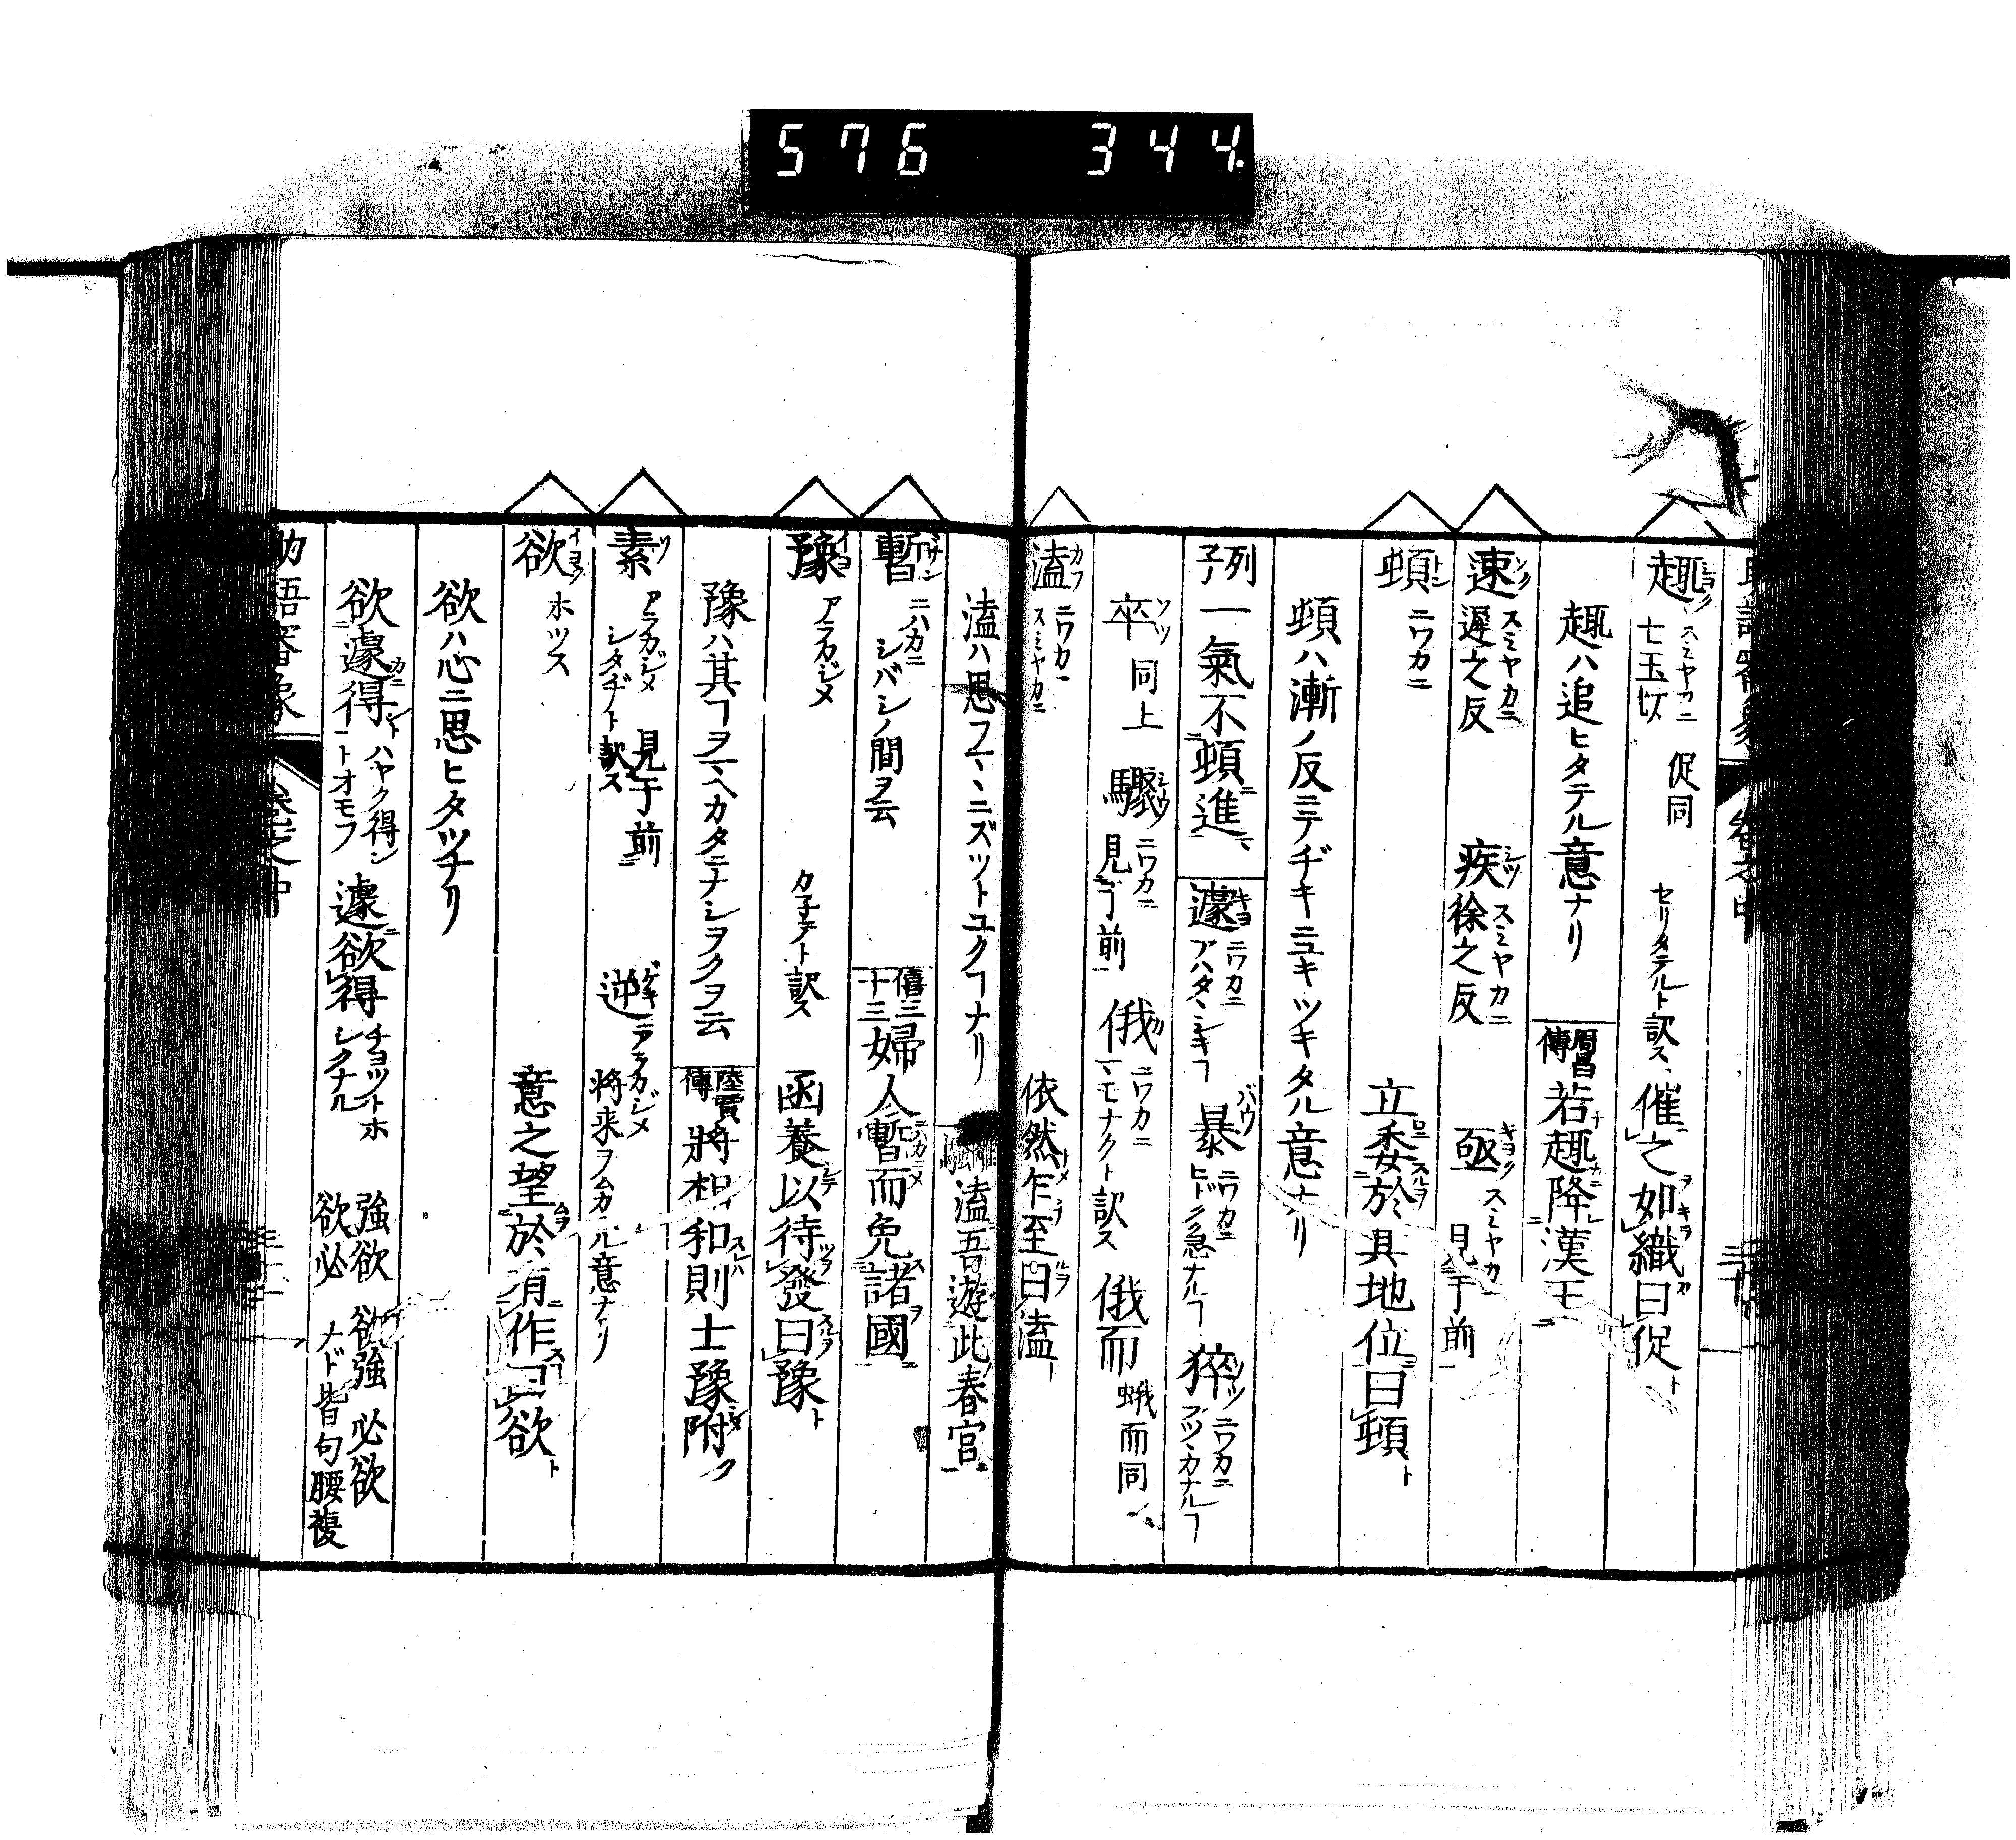 576 344.
趣 スミヤカニ 七玉切 促同 セリタテルト訳ス、催之如織曰促
趣ハ追ヒタテル意ナリ 周昌傳 若趣降漢王
速 スミヤカニ 遲之反 疾 スミヤカニ 徐之反 亟 スミヤカニ 見于前
頓 ニワカニ 立委於其地位曰頓
頓ハ漸ノ反ミテヂキニユキツキタル意ナリ
列子 一氣不頓進 遽 ニワカニ アハタヽシキヿ 暴 ニワカニ ヒドク急ナルヿ 猝 ニワカニ
卒 同上 驟 ニワカニ 見于前 俄 ニワカニ マモナクト訳ス 俄而 蛾而同
溘 ニワカニ スミヤカニ 依然乍至曰溘
溘ハ思フマヽニズットユクヿナリ 溘吾遊此春官
暫 ニハカニ シバシノ間ヲ云 僖三十三 婦人暫而免諸國
豫 アラカジメ カネテト訳ス 函養以待發曰豫
豫ハ其ヿヲマヘカタニナシヲクヲ云 陸賈傳 將相和則士豫附
素 アラカジメ シタヂト訳ス 見于前 逆 アラカジメ 将来ヲムカヘル意ナリ
欲 ホツス 意之望於有作曰欲
欲ハ心ニ思ヒタツナリ
欲遽得 ハヤク得ントオモフ 遽欲得 チョットホシクナル 強欲 欲強 必欲 欲必 ナド皆句腰複
助語審象 卷之中